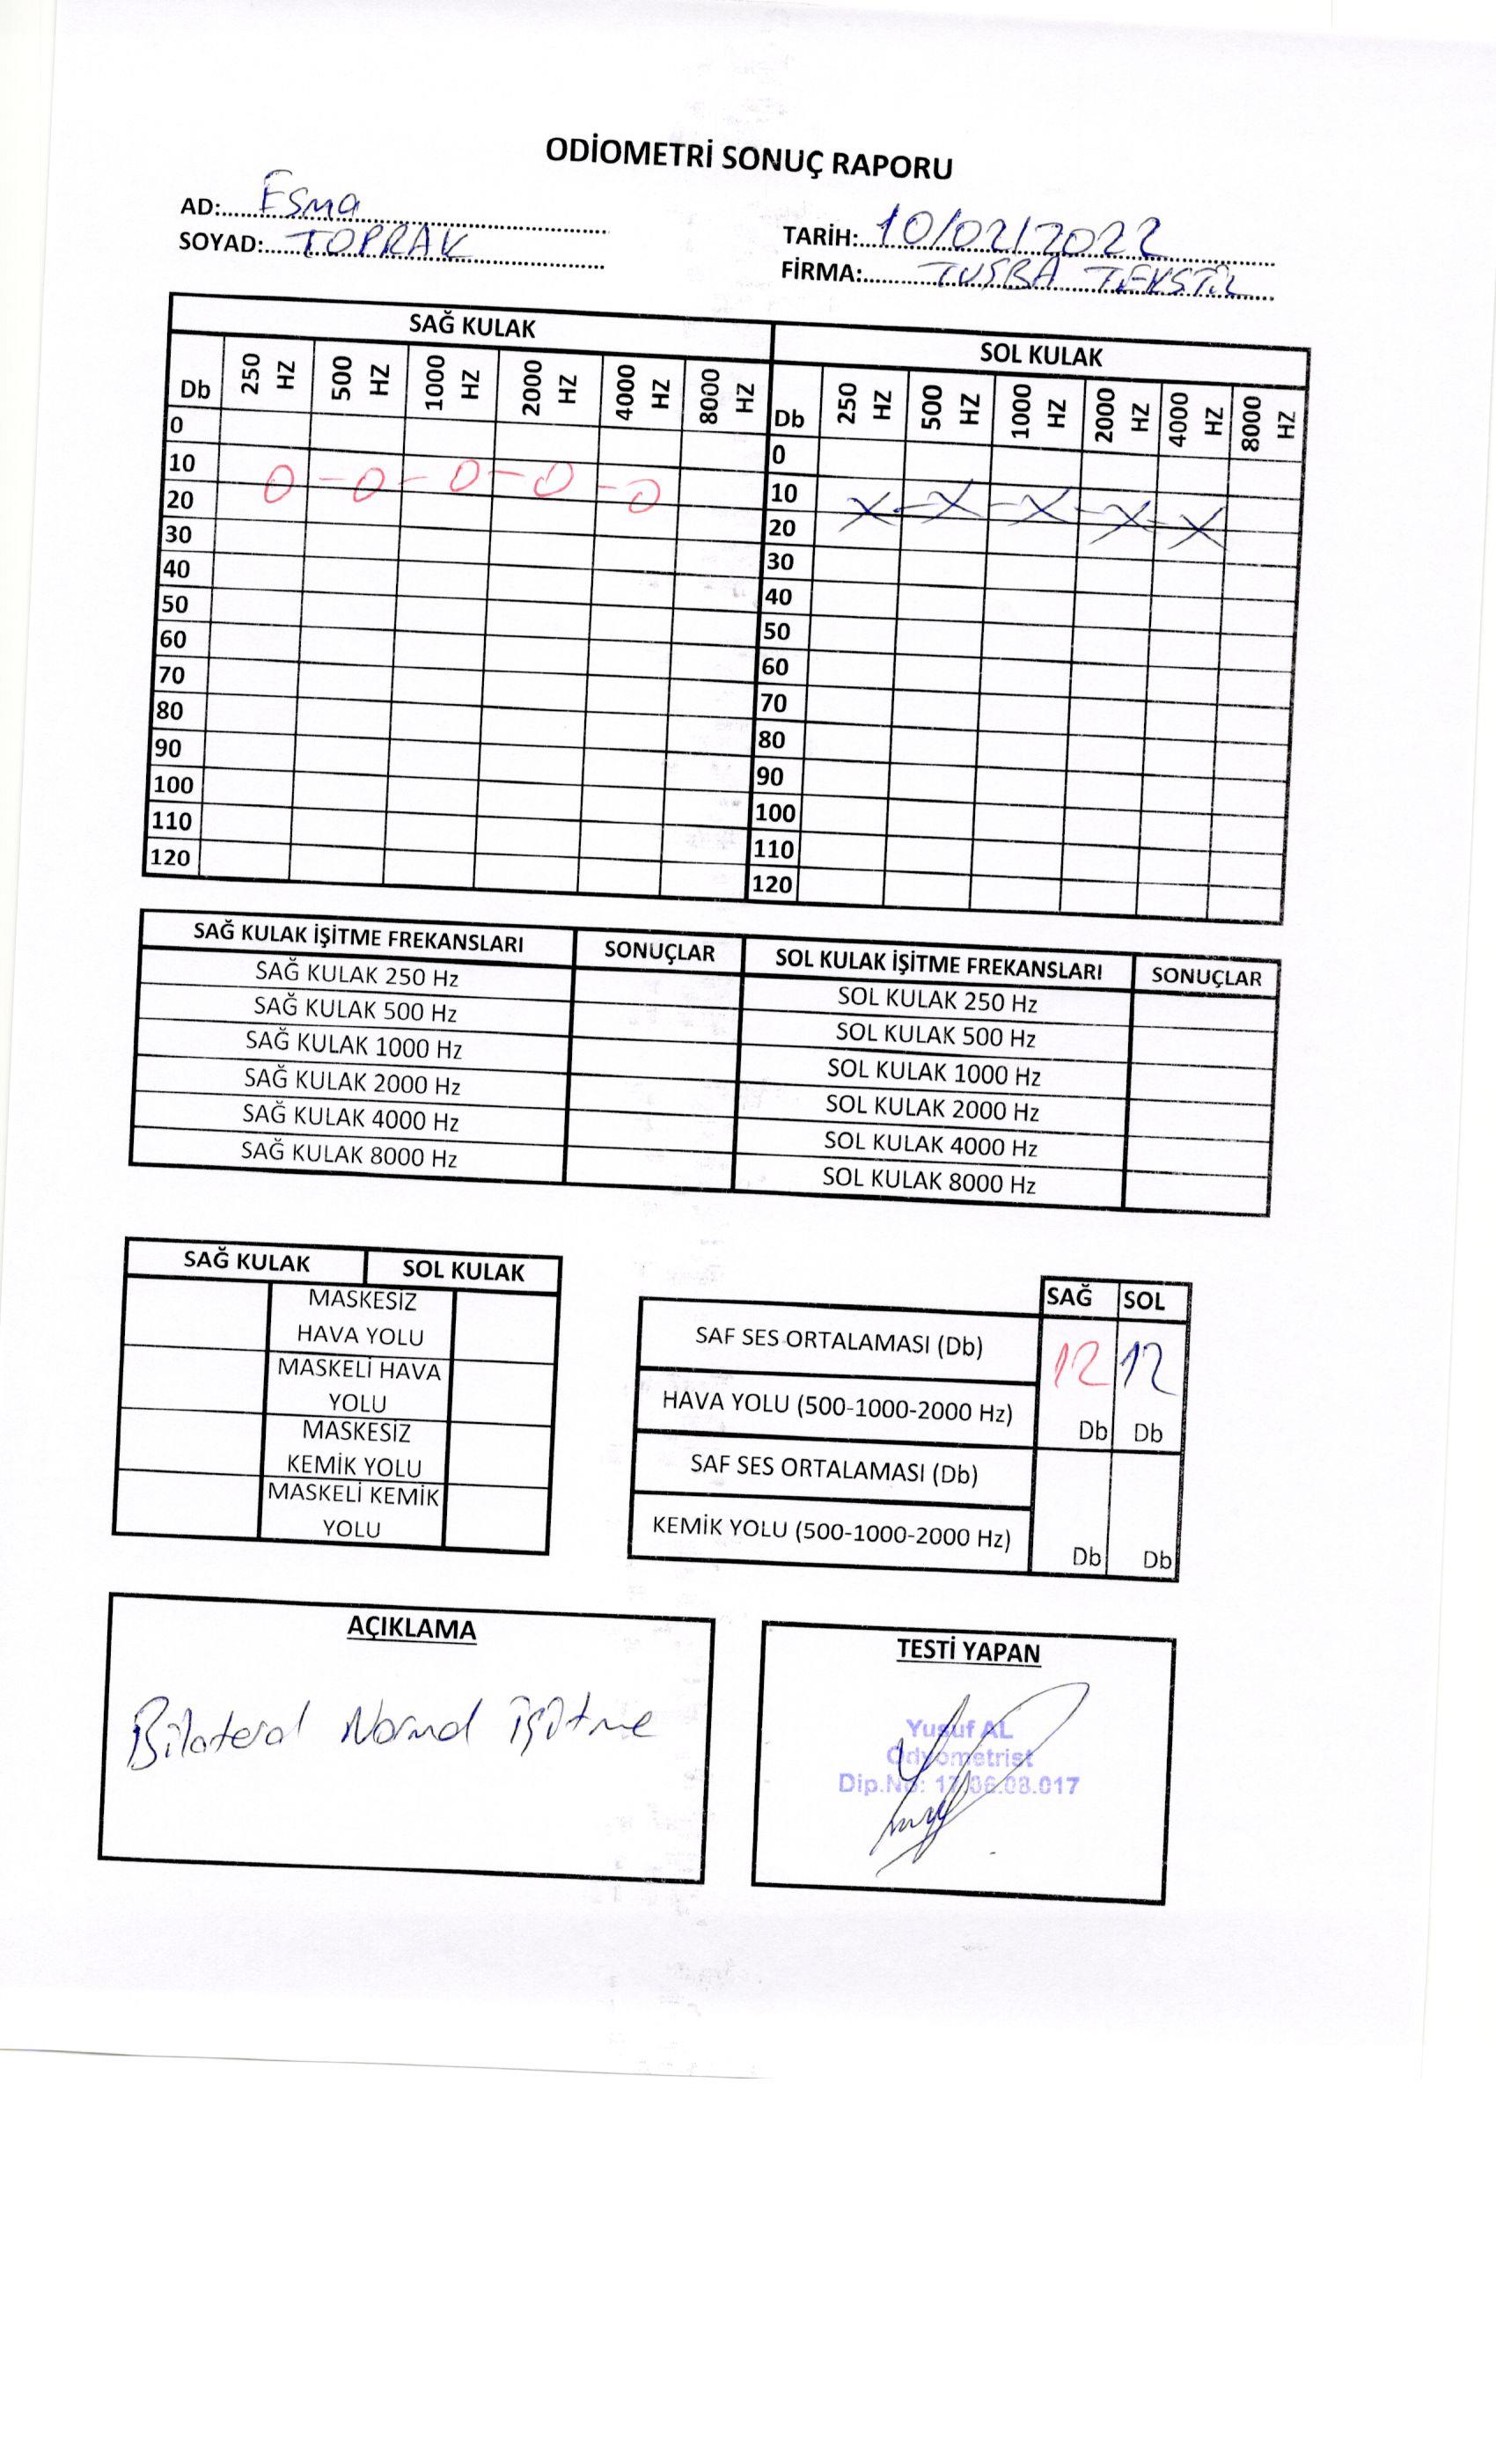 ODİOMETRİ SONUÇ RAPORU
AD:.....Esma
SOYAD:.....TOPRAK
TARİH:.10/02/2022
FİRMA:......TUŞBA TEKSTİL
SAĞ KULAK SOL KULAK
Db 250 HZ 500 HZ 1000 HZ 2000 HZ 4000 HZ 8000 HZ Db 250 HZ 500 HZ 1000 HZ 2000 HZ 4000 HZ 8000 HZ
0 0
10 10
0-0-0-0-0 X-X-X-X-X
20 20
30 30
40 40
50 50
60 60
70 70
80 80
90 90
100 100
110 110
120 120
SAĞ KULAK İŞİTME FREKANSLARI SONUÇLAR SOL KULAK İŞİTME FREKANSLARI SONUÇLAR
SAĞ KULAK 250 Hz SOL KULAK 250 Hz
SAĞ KULAK 500 Hz SOL KULAK 500 Hz
SAĞ KULAK 1000 Hz SOL KULAK 1000 Hz
SAĞ KULAK 2000 Hz SOL KULAK 2000 Hz
SAĞ KULAK 4000 Hz SOL KULAK 4000 Hz
SAĞ KULAK 8000 Hz SOL KULAK 8000 Hz
SAĞ KULAK SOL KULAK
MASKESİZ
HAVA YOLU
MASKELİ HAVA
YOLU
MASKESİZ
KEMİK YOLU
MASKELİ KEMİK
YOLU
SAĞ SOL
SAF SES ORTALAMASI (Db) 12 12
HAVA YOLU (500-1000-2000 Hz) Db Db
SAF SES ORTALAMASI (Db)
KEMİK YOLU (500-1000-2000 Hz) Db Db
AÇIKLAMA
Bilateral Normal işitme
TESTİ YAPAN
Yusuf AL
Odyometrist
Dip.No: 17.06.08.017